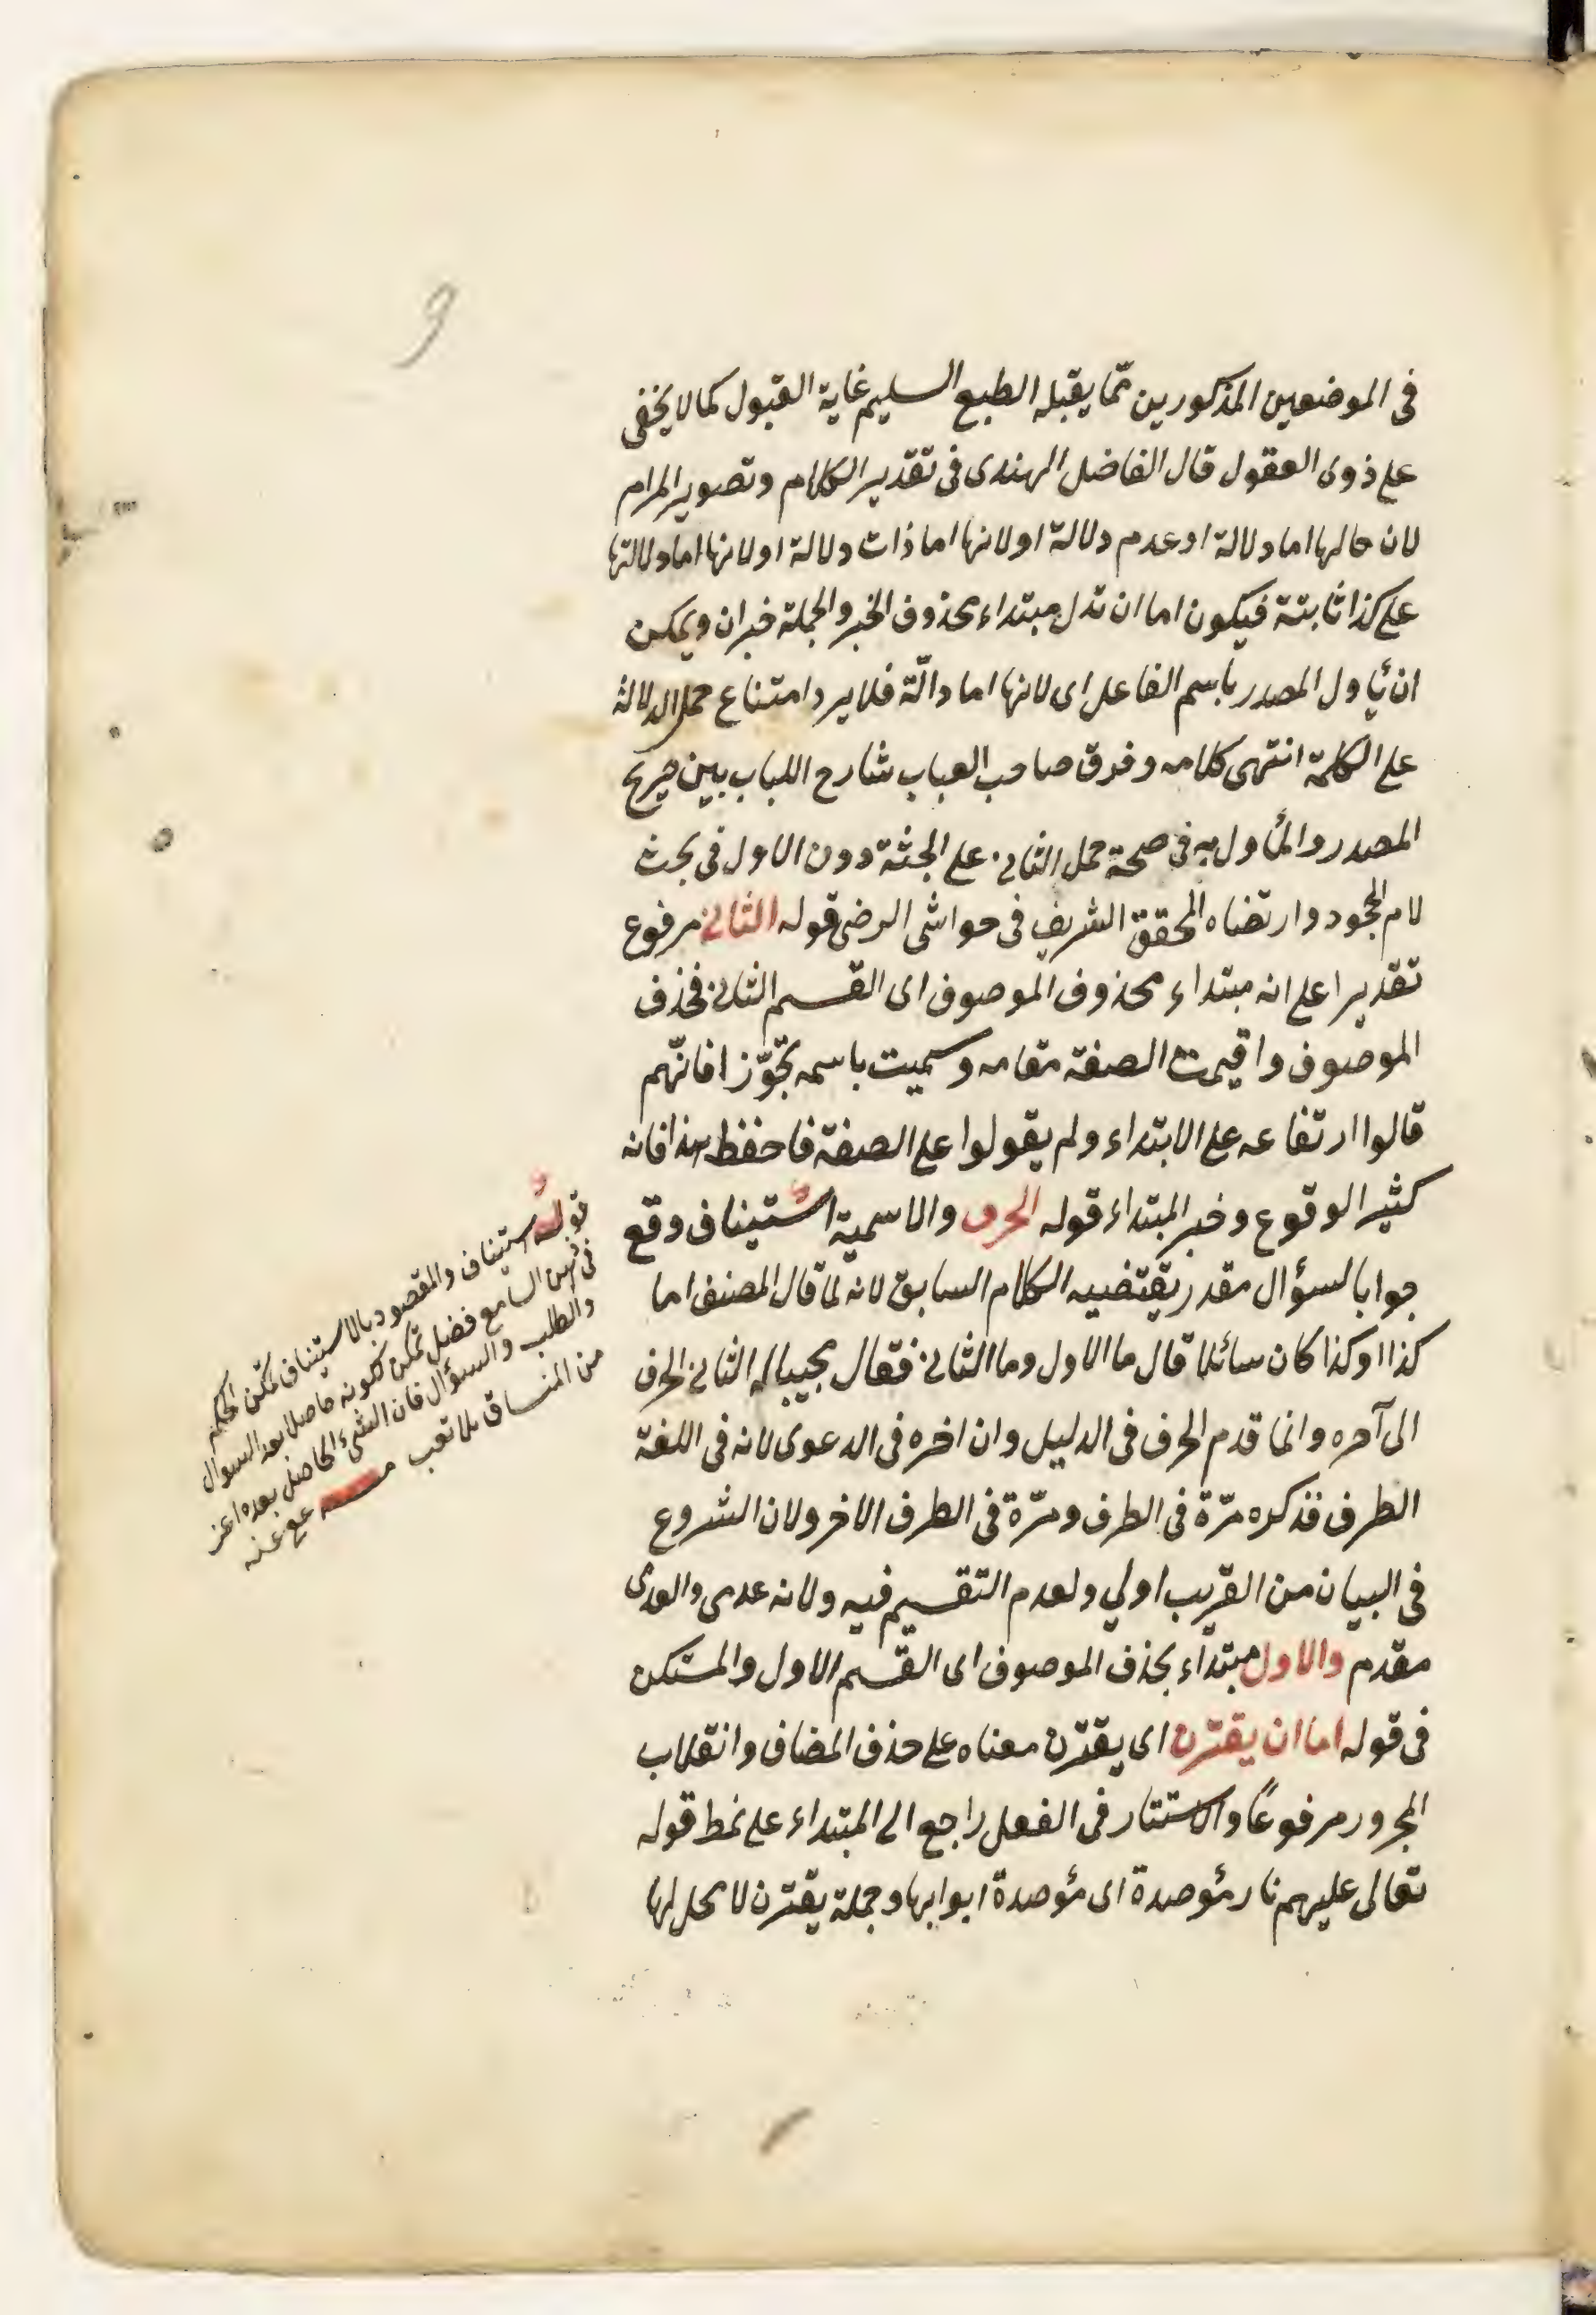 فى الموضعين المذكورين ممّا يقبله الطبع السليم غاية القبول كما لا يخفى
على ذوى العقول قال الفاضل الهندى فى تقدير الكلام وتصوير المرام
لان حالها اما دلالة او عدم دلالة او لانها اما ذات دلالة او لانها اما دلالتها
على كذا ثابتة فيكون اما ان تدل مبتداء محذوف الخبر والجملة خبر ان ويمكن
ان يأول المصدر باسم الفاعل اى لانها اما دالّة فلا يرد امتناع حمل الدلالة
على الكلمة انتهى كلامه وفرق صاحب العباب شارح اللباب بين صريح
المصدر والمأول به فى صحة حمل الثانى على الجثة دون الاول فى بحث
لام الجحود وارتضاه المحقق الشريف فى حواشى الرضى قوله الثانى مرفوع
تقديرا على انه مبتداء محذوف الموصوف اى القسم الثانى فحذف
الموصوف واقيمت الصفة مقامه وسميت باسمه تجوّزا فانّهم
قالوا ارتفاعه على الابتداء ولم يقولوا على الصفة فاحفظ هذا فانه
كثير الوقوع وخبر المبتداء قوله الحرف والاسمية استيناف وقع
جوابا لسؤال مقدر يقتضيه الكلام السابق لانه لمّا قال المصنف اما
كذا او كذا كان سائلا قال ما الاول وما الثانى فقال مجيبا له الثانى الحرف
الى آخره وانما قدم الحرف فى الدليل وان اخره فى الدعوى لانه فى اللغة
الطرف فذكره مرّة فى الطرف ومرّة فى الطرف الاخر ولان الشروع
فى البيان من القريب اولي ولعدم التقسيم فيه ولانه عدمى والعدمى
مقدم والاول مبتداء بحذف الموصوف اى القسم الاول والمستكن
فى قوله اما ان يقترن اى يقترن معناه على حذف المضاف وانقلاب
المجرور مرفوعًا والاستتار فى الفعل راجع الى المبتداء على نمط قوله
تعالى عليهم نار مؤصدة اى مؤصدة ابوابها وجملة يقترن لا محل لها
قوله استيناف والمقصود بالاستيناف تمكن الحكم
فى ذهن السامع فضل تمكن لكونه حاصلا بعد السوال
والطلب والسؤال فان الشئ الحاصل بعده اعز
من المنساق بلا تعب عفى عنه